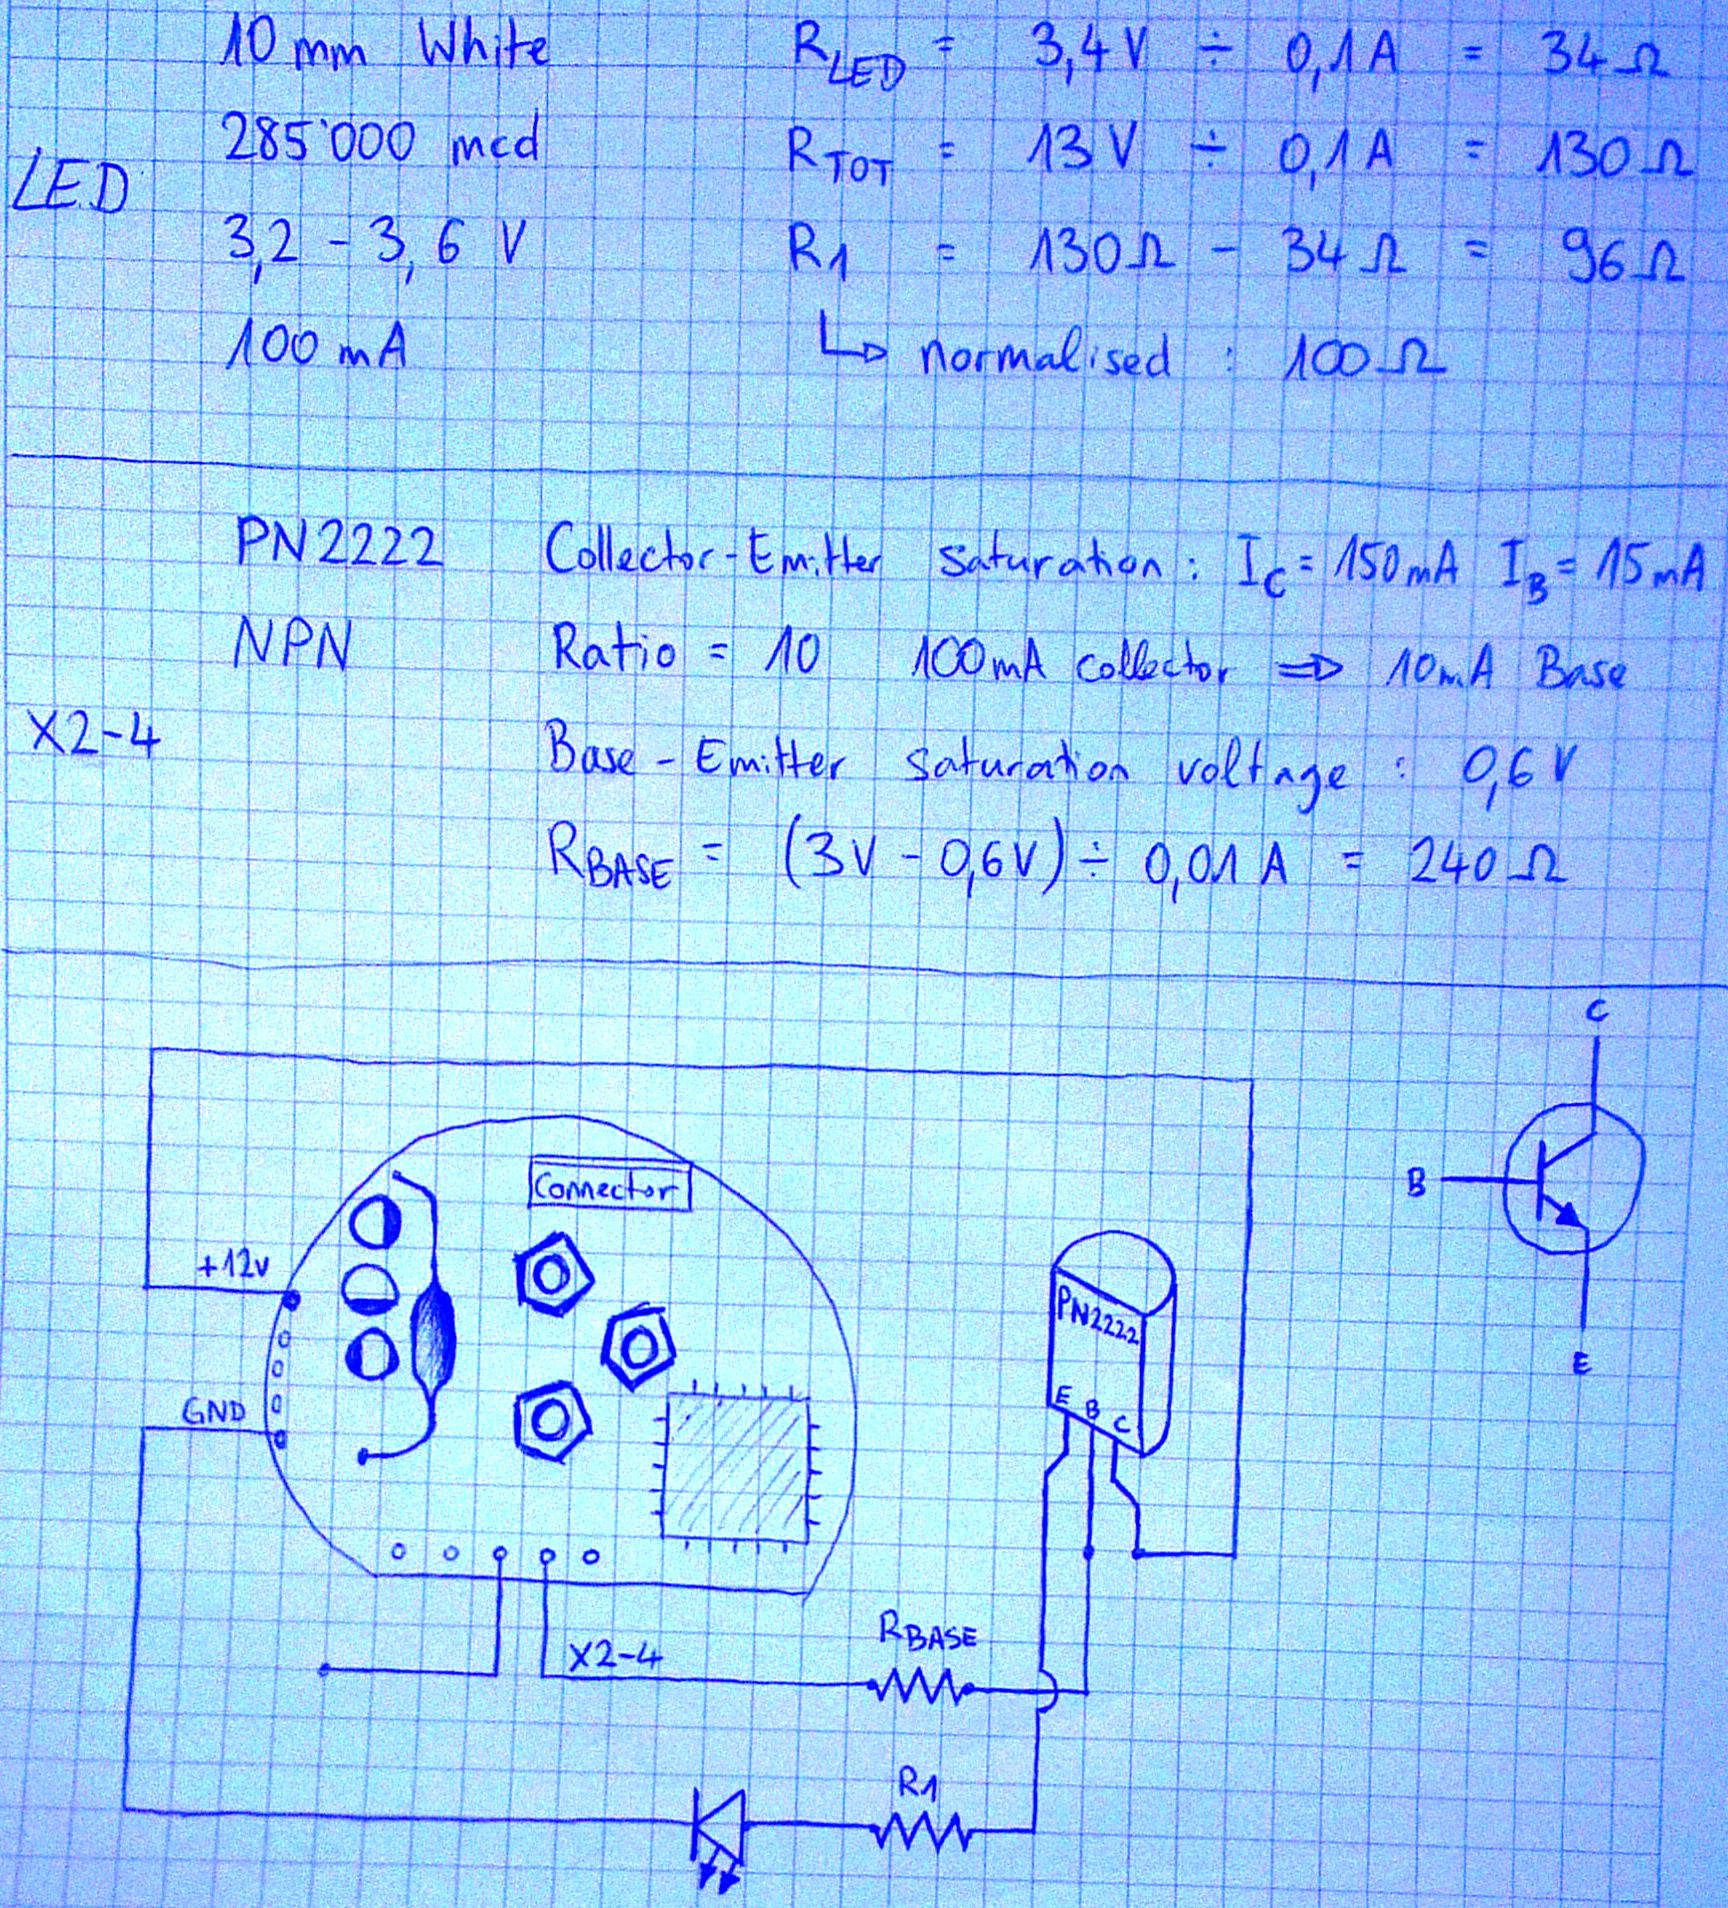 10 mm White
285'000 mcd
LED
3,2 - 3,6 V
100 mA
R LED = 3,4 V ÷ 0,1 A = 34 Ω
R TOT = 13 V ÷ 0,1 A = 130 Ω
R1 = 130 Ω - 34 Ω = 96 Ω
↳ normalised : 100 Ω
PN2222 Collector-Emitter saturation : I C = 150 mA I B = 15 mA
NPN Ratio = 10 100 mA collector ⇒ 10 mA Base
X2-4 Base-Emitter saturation voltage : 0,6 V
R BASE = (3V - 0,6V) ÷ 0,01 A = 240 Ω
C
B
E
Connector
+12v
GND
PN2222
E B C
X2-4
R BASE
R1